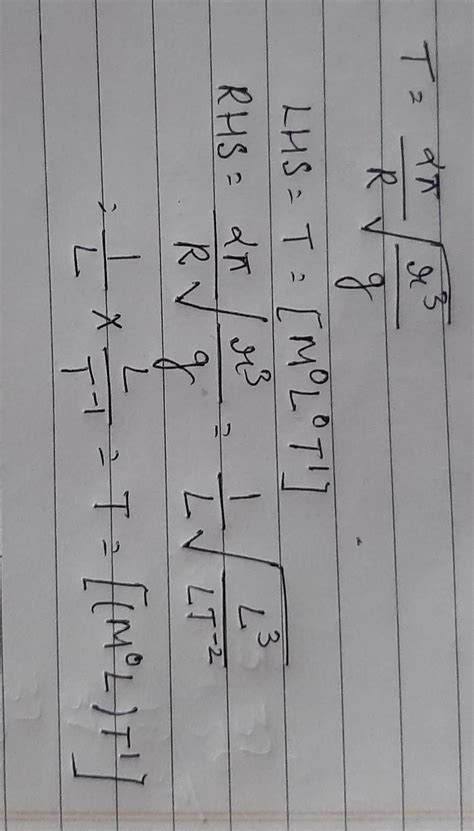 T = 2π/R √(r³/g)
LHS = T = [M⁰L⁰T¹]
RHS = 2π/R √(r³/g) = 1/L √(L³/LT⁻²)
= 1/L × L/T⁻¹ = T = [(M⁰L)T¹]